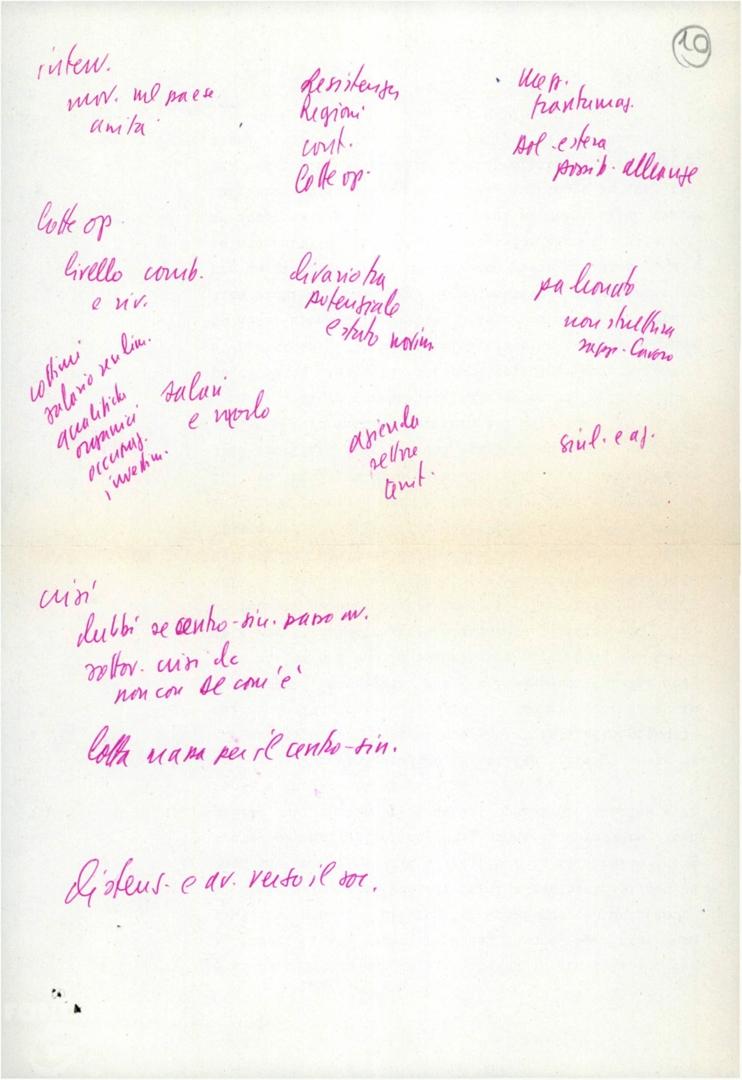 10
interv.
mov. nel paese
unità
Resistenza
Regioni
cont.
lotte op.
frantumaz.
pol. estera
possib. alleanze
Lotte op.
livello comb.
e riv.
divario tra
potenziale
e stato movim.
padronato
non struttura
rapp. lavoro
cottimi
salario
qualifiche
organici
occupaz.
investim.
salari
e
azienda
settore
unit.
sind. e az.
crisi
dubbi se centro-sin. passo av.
sottov. crisi dc
non con dc com'è
lotta massa per il centro-sin.
distens. e av. verso il soc.